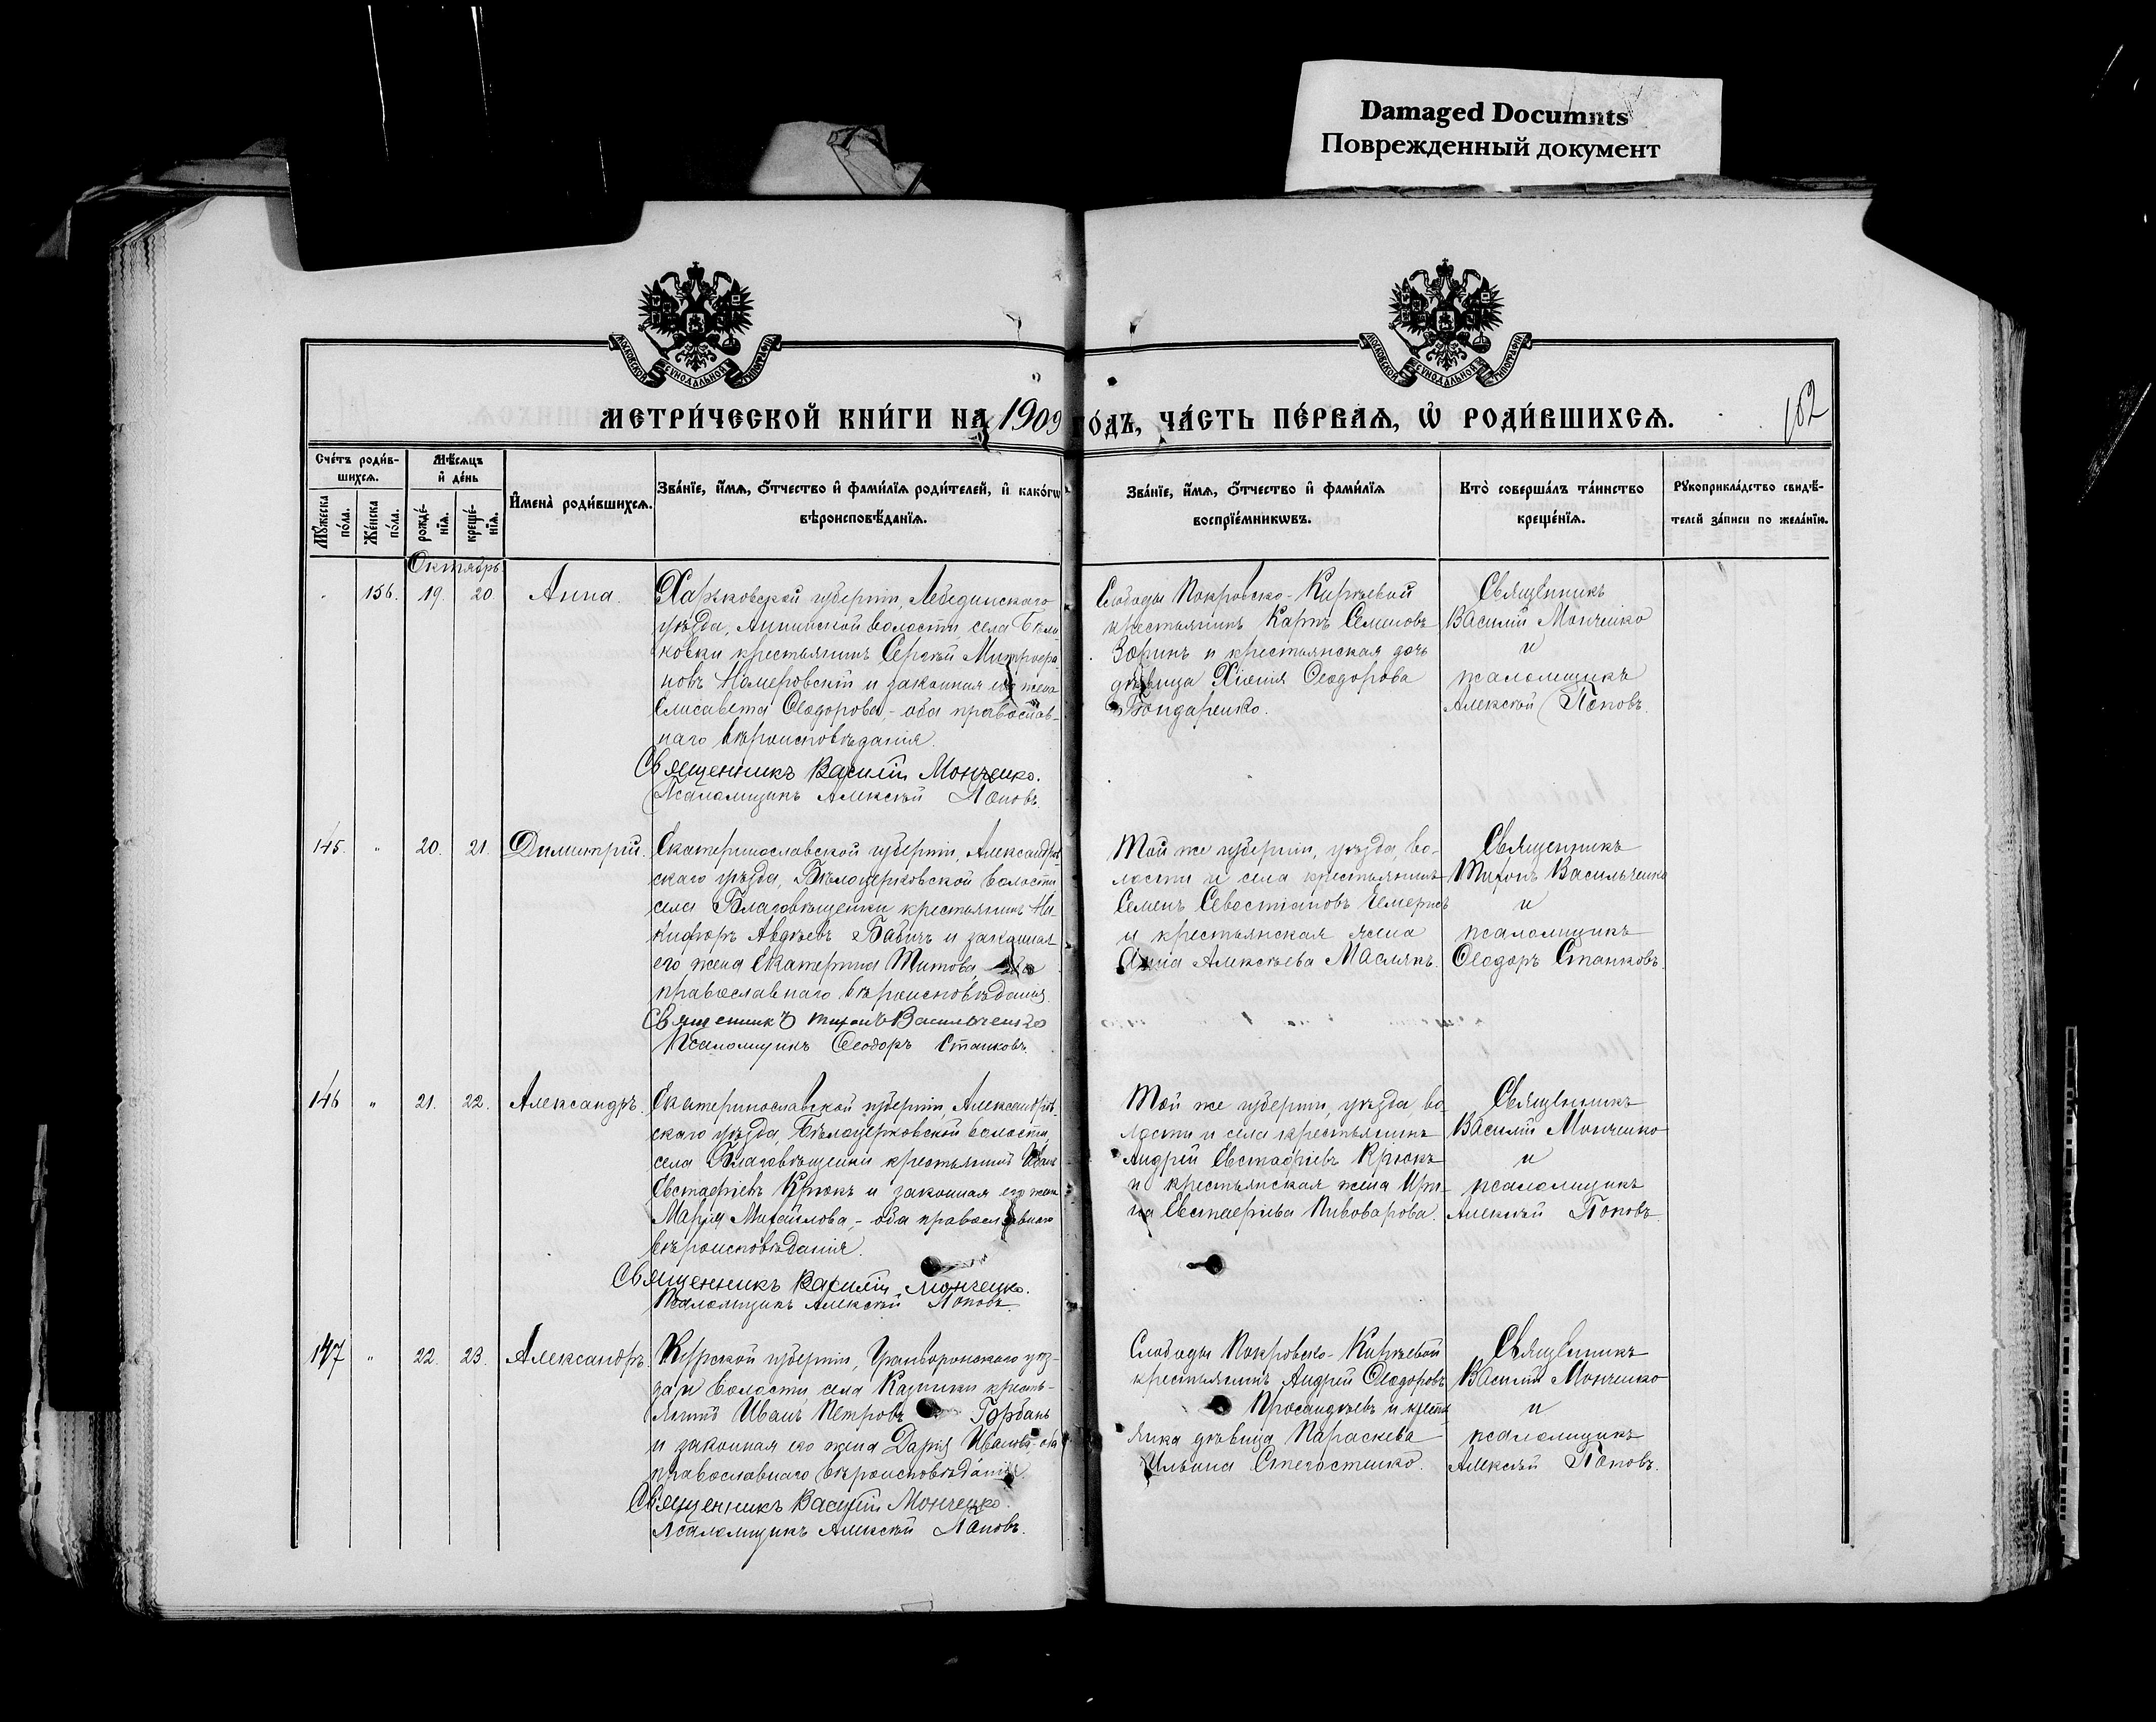 Damaged Documnts
Поврежденный документ
МОСКОВСКОЙ СѴНОДАЛЬНОЙ ТИПОГРАФІИ
МОСКОВСКОЙ СѴНОДАЛЬНОЙ ТИПОГРАФІИ
МЕТРИ́ЧЕСКОЙ КНИ́ГИ НА 1909 ГО́ДЪ, ЧА́СТЬ ПЕ́РВАѦ, Ѡ҆ РОДИ́ВШИХСѦ.
102
Сче́тъ роди́в-
шихсѧ.
Мꙋ́жеска по́ла.
Же́нска по́ла.
Мѣ́сѧцъ
и҆ де́нь
рожде́-нїѧ.
креще́-нїѧ.
И҆мена̀ роди́вшихсѧ.
Зва́нїе, и҆́мѧ, ѻ҆́тчество и҆ фами́лїѧ роди́телей, и҆ како́гѡ
вѣроисповѣ́данїѧ.
Зва́нїе, и҆́мѧ, ѻ҆́тчество и҆ фами́лїѧ
воспрїе́мникѡвъ.
Кто̀ соверша́лъ та́инство
креще́нїѧ.
Рꙋкоприкла́дство свидѣ́-
телей за́писи по жела́нїю.
Октябрь
156. 19. 20. Анна.
Харьковской губерніи, Лебединскаго
уѣзда, Аннинской волости, села Бѣли-
ковки крестьянинъ Сергѣй Митрофа-
новъ Номеровскій и законная его жена
Елисавета Ѳеодорова, - оба православ-
наго вѣроисповѣданія.
Священникъ Василій Монченко.
Псаломщикъ Алексѣй Поповъ.
Слободы Покровско-Кирѣевой
крестьянинъ Карпъ Семеновъ
Зоринъ и крестьянская дочь
дѣвица Хіонія Ѳеодорова
Бондаренко.
Священникъ
Василій Монченко
и
псаломщикъ
Алексѣй Поповъ.
145. " 20. 21. Димитрій.
Екатеринославской губерніи, Александров-
скаго уѣзда, Бѣлоцерковской волости
села Благовѣщенки крестьянинъ Ни-
кифоръ Авдѣевъ Бабичъ и законная
его жена Екатерина Титова, оба
православнаго вѣроисповѣданія.
Священникъ Тихонъ Васильченко
Псаломщикъ Ѳеодоръ Станковъ.
Той же губерніи, уѣзда, во-
лости и села крестьянинъ
Семенъ Севостіановъ Чемерисъ
и крестьянская жена
Анна Алексѣева Маслякъ.
Священникъ
Тихонъ Васильченко
и
псаломщикъ
Ѳеодоръ Станковъ.
146 " 21. 22. Александръ.
Екатеринославской губерніи, Александров-
скаго уѣзда, Бѣлоцерковской волости,
села Благовѣщенки крестьянинъ Иванъ
Евстафіевъ Крюкъ и законная его жена
Марія Михайлова, - оба православнаго
вѣроисповѣданія.
Священникъ Василій Монченко.
Псаломщикъ Алексѣй Поповъ.
Той же губерніи, уѣзда, во-
лости и села крестьянинъ
Андрей Евстафіевъ Крюкъ
и крестьянская жена Ири-
на Евстафіева Пивоварова.
Священникъ
Василій Монченко
и
псаломщикъ
Алексѣй Поповъ.
147 " 22. 23. Александръ.
Курской губерніи, Грайворонскаго уѣз-
да и волости села Казинки кресть-
янинъ Иванъ Петровъ Горбань
и законная его жена Дарія Иванова - оба
православнаго вѣроисповѣданія.
Священникъ Василій Монченко.
Псаломщикъ Алексѣй Поповъ.
Слободы Покровско-Кирѣевой
крестьянинъ Андрей Ѳеодоровъ
и крестья-
янка дѣвица Параскева
Ильина
Священникъ
Василій Монченко
и
псаломщикъ
Алексѣй Поповъ.